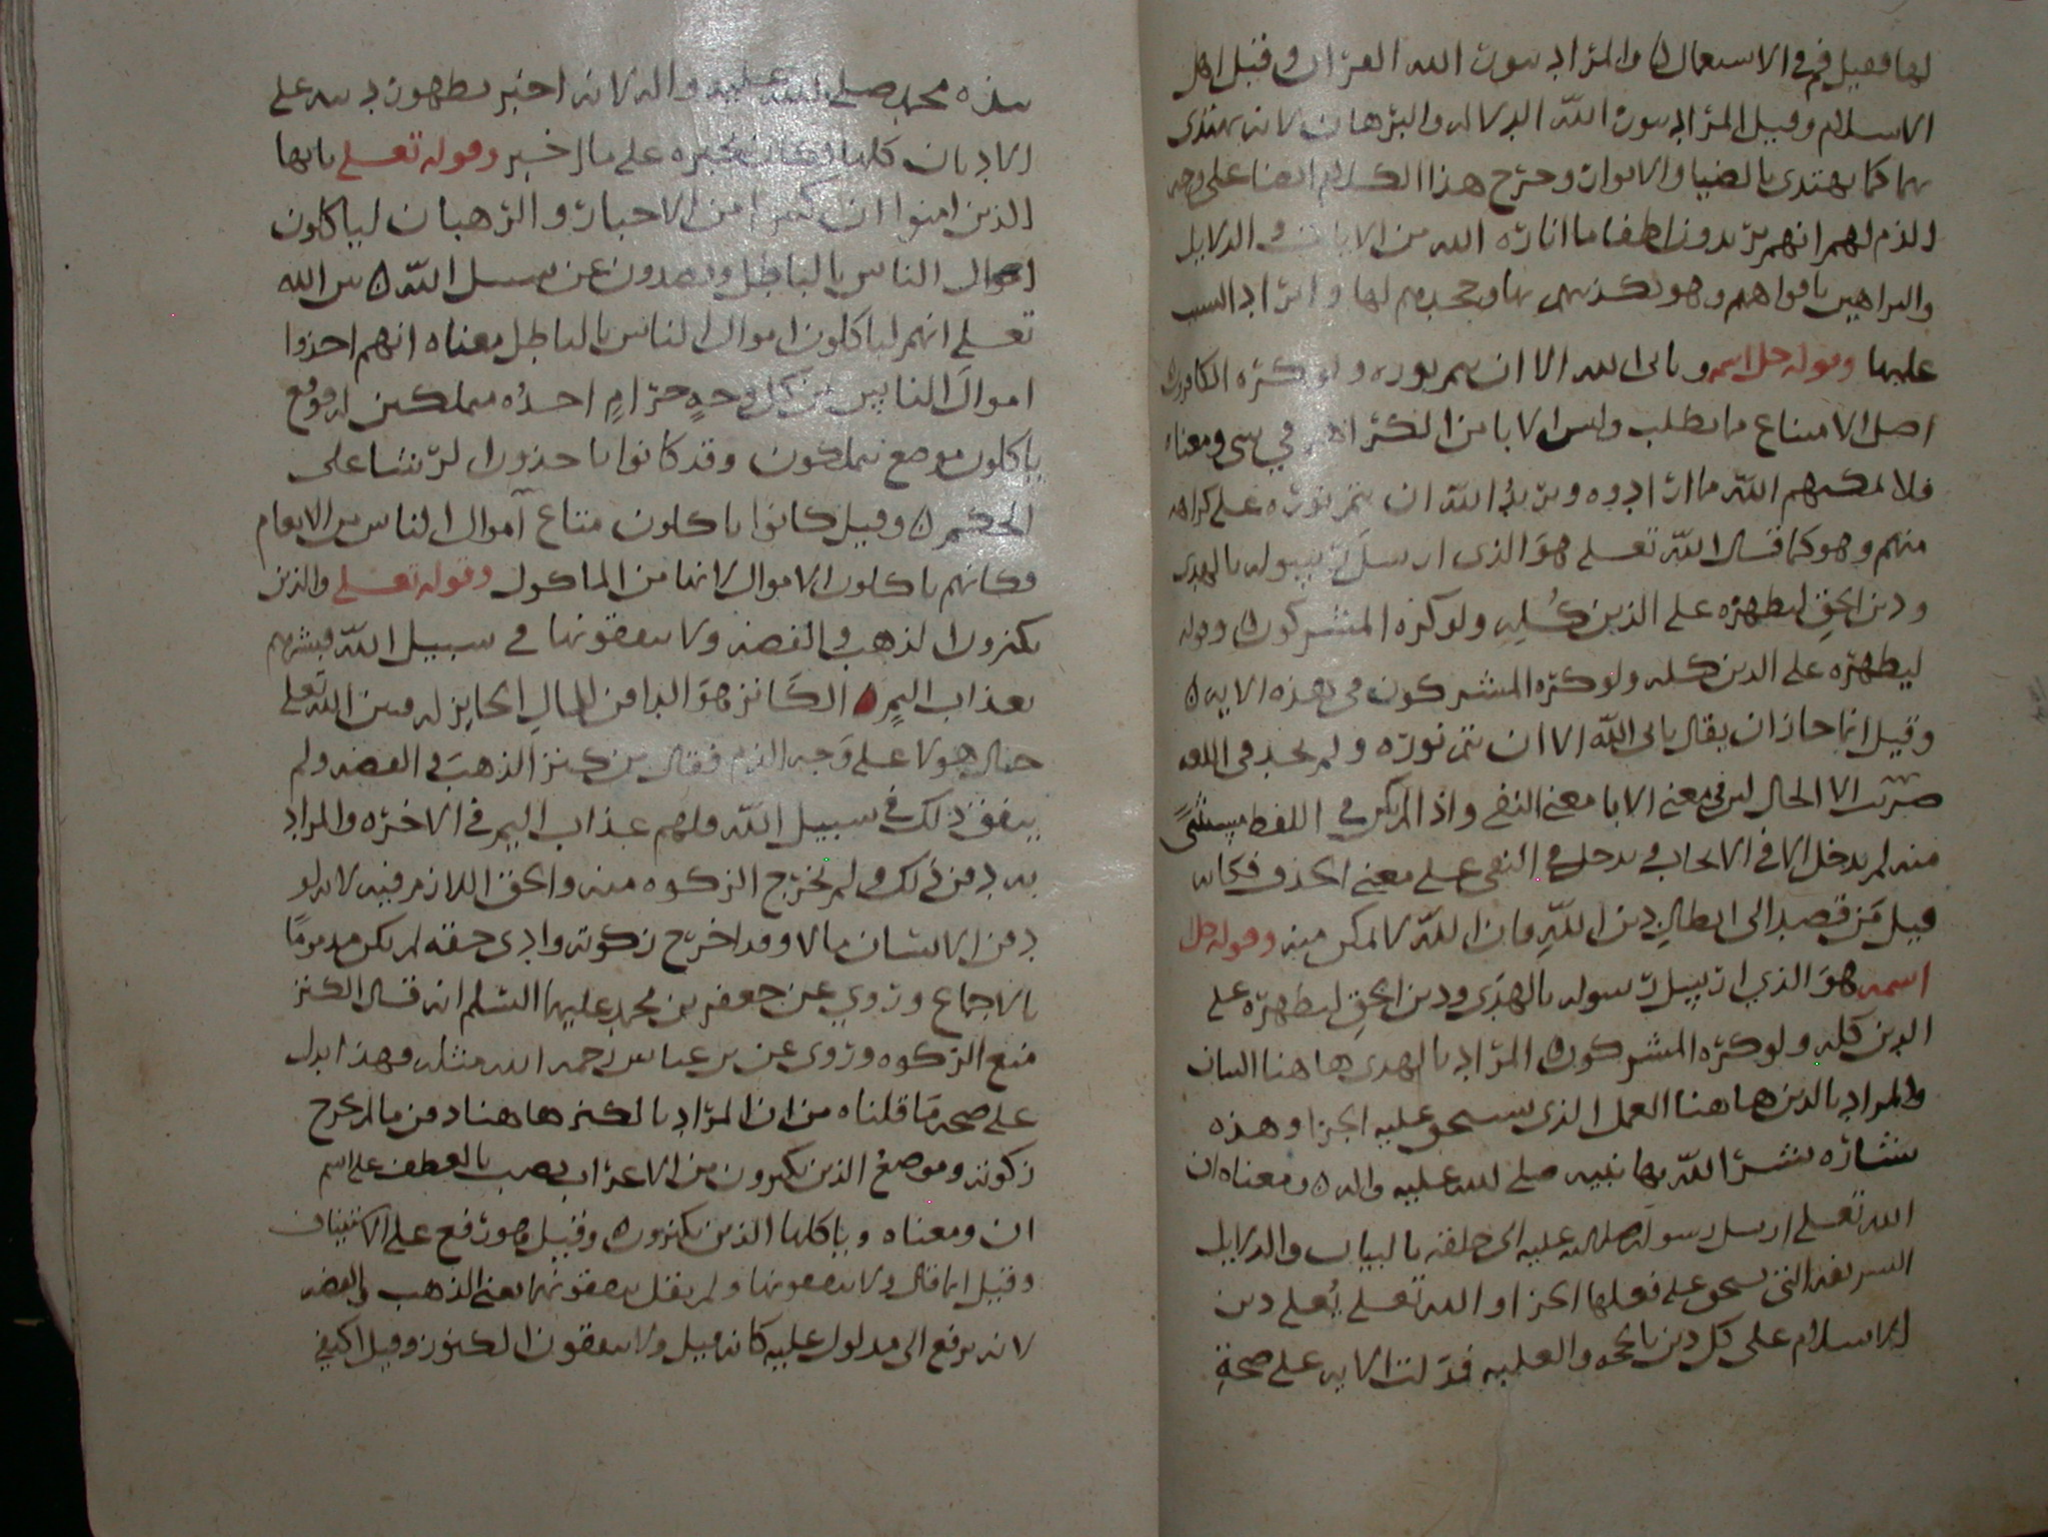 لها فقيل فم في الاستعمال والمراد بنور الله القران وقيل اهل
الاسلام وقيل المراد بنور الله الدلاله والبرهان لانه يهتدى
بهما كما يهتدى بالضيا والانوار وخرج هذا الكلام ايضا على وجه
الذم لهم انهم يريدون اطفا ما اناره الله من الايات والدلايل
والبراهين بافواههم وهو تكذيبهم بها وجحدهم لها وايراد السبب
عليها وقوله جل اسمه ويابى الله الا ان يتم نوره ولو كره الكافرون
اصل الامتناع مما يطلب وليس الابا من الكراهه في شى ومعناه
فلا يمكنهم الله مما ارادوه ويريد الله ان يتم نوره على كراهه
منهم وهو كما قال الله تعلى هو الذى ارسل رسوله بالهدى
ودين الحق ليظهره على الدين كله ولو كره المشركون وقوله
ليظهره على الدين كله ولو كره المشركون في هذه الايه
وقيل انما جاز ان يقال يابى الله الا ان يتم نوره ولم يجز في اللغه
ضربت الا الحال لان في معنى الابا معنى النفى واذا لم يكن في اللفظ مستثنىً
منه لم يدخل الا في الايجاب ويدخل في النفى على معنى الحذف فكانه
قيل من قصد الى ابطال دين الله فان الله لا يمكن منه وقوله جل
اسمه هو الذي ارسل رسوله بالهدى ودين الحق ليظهره على
الدين كله ولو كره المشركون المراد بالهدى هاهنا البيان
والمراد بالدين هاهنا العمل الذى يستحق عليه الجزا وهذه
بشاره بشر الله بها نبيه صلى الله عليه واله ومعناه ان
الله تعلى ارسل رسوله صلى الله عليه الى خلقه بالبيان والدلايل
الشريفه التى يستحق على فعلها الجزا والله تعلى يُعلى دين
الاسلام على كل دين بالحجه والغلبه فدلت الايه على صحةِ
نبوه محمد صلى الله عليه واله لانه اخبر بظهور دينه على
الاديان كلها وكان مخبره على ما اخبر وقوله تعلى يايها
الذين امنوا ان كثيرا من الاحبار والرهبان لياكلون
اموال الناس بالباطل ويصدون عن سبيل الله بين الله
تعلى انهم لياكلون اموال الناس بالباطل معناه انهم اخذوا
اموال الناس من كل وجهٍ حرامٍ اخذه متملكين له فوضع
ياكلون موضع يتملكون وقد كانوا ياخذون الرشا على
الحكم وقيل كانوا ياكلون متاع اموال الناس من الانعام
فكانهم ياكلون الاموال لانها من الماكول وقوله تعلى والذين
يكنزون الذهب والفضه ولا ينفقونها في سبيل الله فبشرهم
بعذاب اليمٍ الكانز هو الدافن المال الحايز له فبين الله تعلى
حال هولا على وجه الذم فقال من كنز الذهب في الفضه ولم
ينفق ذلك في سبيل الله فلهم عذاب اليم في الاخره والمراد
به دفن ذلك ولم تخرج الزكوه منه والحق اللازم فيه لانه لو
دفن الانسان مالا وقد اخرج زكوته وادى حقه لم يكن مدموماً
بالاجماع وروي عن جعفر بن محمد عليهما السلم انه قال الكنز
منع الزكوه وروى عن بن عباس رحمه الله مثله وهذا يدل
على صحه ما قلناه من ان المراد بالكنز هاهنا دفن ما لم يخرج
زكوته وموضع الذين يكنزون من الاعراب نصب بالعطف على اسم
ان ومعناه وياكلها الذين يكنزون وقيل هو رفع على الاستيناف
وقيل انما قال ولا ينفقونها ولم يقل ينفقونهما يعنى الذهب والفضه
لانه يرجع الى مدلول عليه كانه قيل ولا ينفقون الكنوز وقيل اكتفى